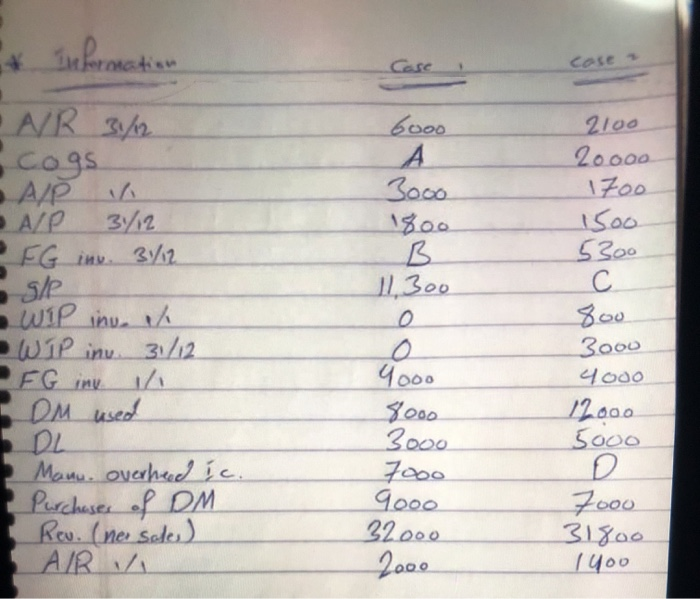 * Information Case 1 Case 2
A/R 31/12 6000 2100
Cogs A 20000
A/P 1/1 3000 1700
A/P 31/12 1800 1500
FG inv. 31/12 B 5300
S/P 11,300 C
WIP inv. 1/1 0 800
WIP inv. 31/12 0 3000
FG inv. 1/1 4000 4000
DM used 8000 12000
DL 3000 5000
Manu. overhead i.c. 7000 D
Purchases of DM 9000 7000
Rev. (net sales) 32000 31800
A/R 1/1 2000 1400